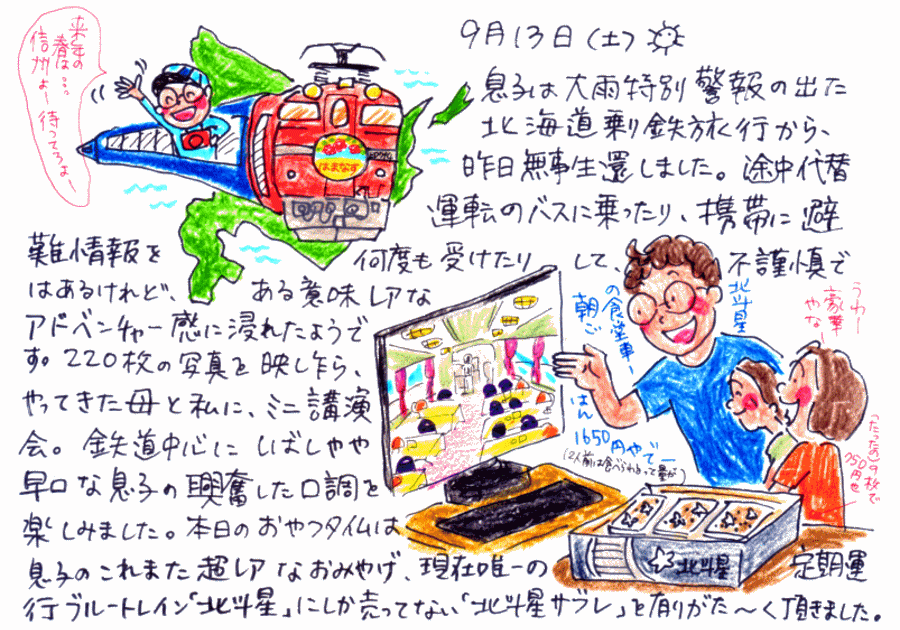 9月13日（土）
息子は大雨特別警報の出た
北海道乗り鉄旅行から、
昨日無事生還しました。途中代替
運転のバスに乗ったり、携帯に避
難情報を何度も受けたりして、不謹慎で
はあるけれど、ある意味レアな
アドベンチャー感に浸れたようで
す。220枚の写真を映しながら、
やってきた母と私に、ミニ講演
会。鉄道中心にしばしやや
早口な息子の興奮した口調を
楽しみました。本日のおやつタイムは
息子のこれまた超レアなおみやげ、現在唯一の定期運
行ブルートレイン「北斗星」にしか売ってない「北斗星サブレ」を有りがた〜く頂きました。
来年の
春は…
信州よー
待ってろよー
はまなす
北斗星
の食堂車、
朝ごはん
1650円やでー
うわー
豪華
やな
「たったの」9枚で
750円也
北斗星